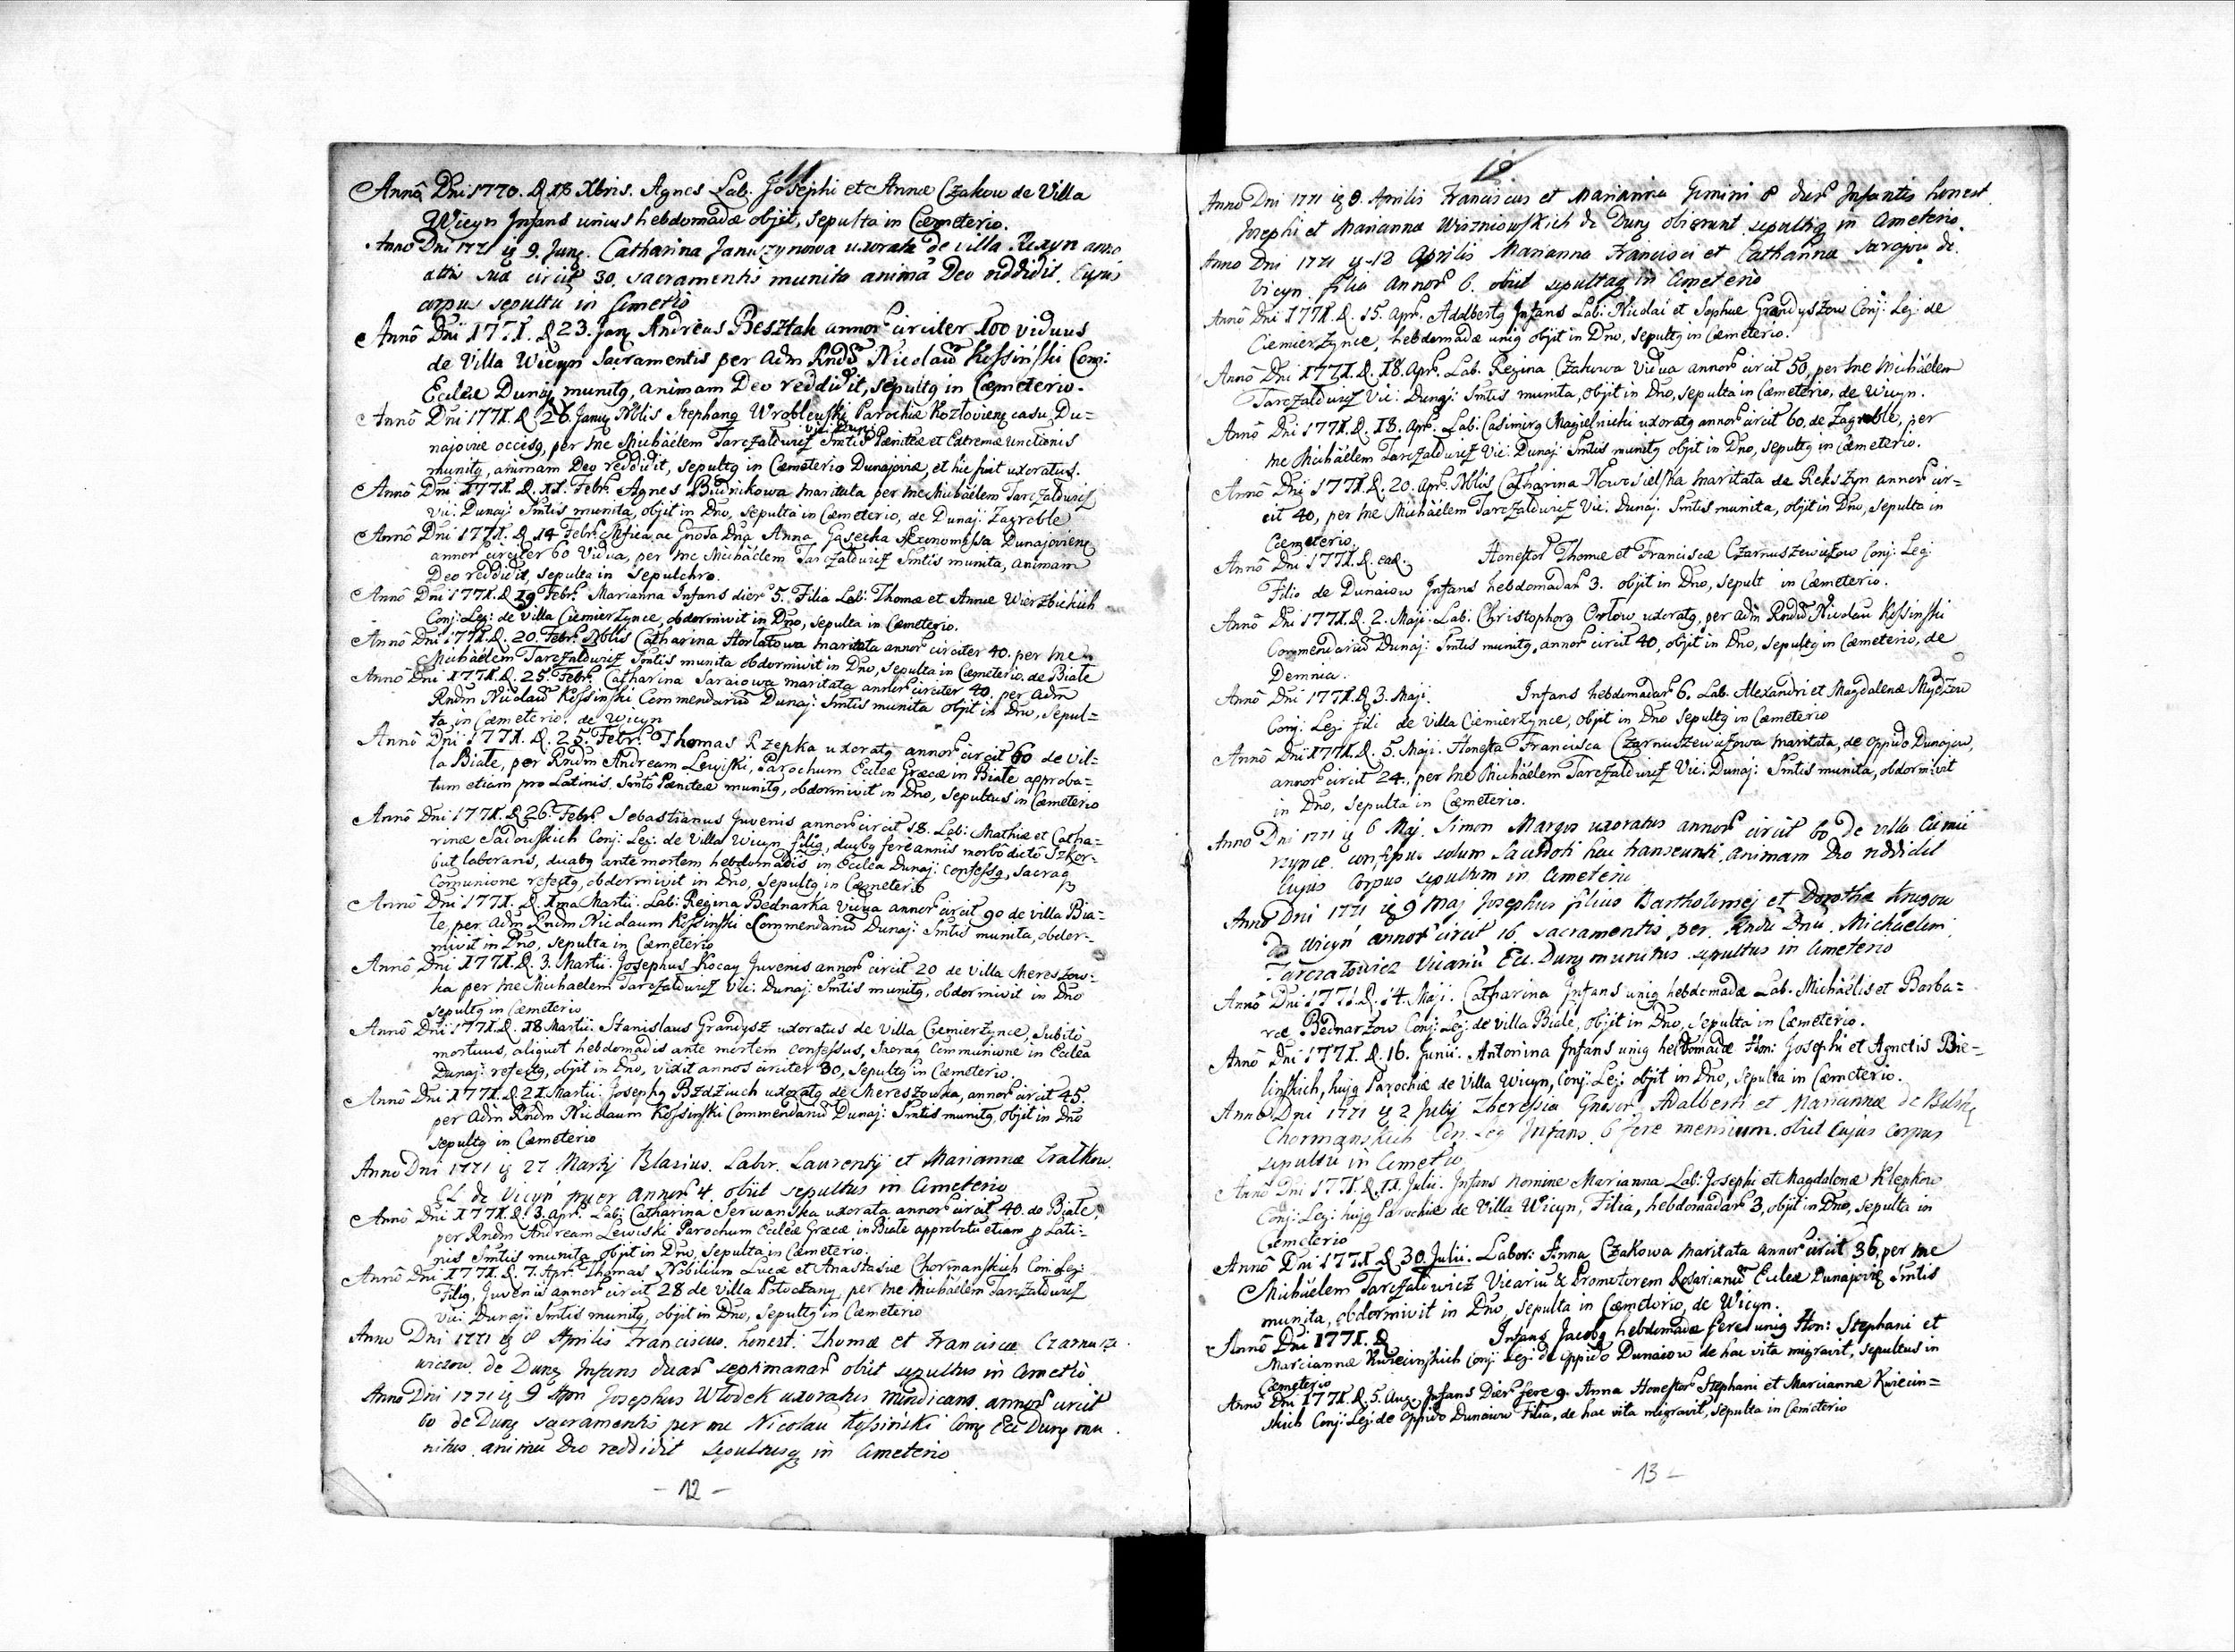 11
Annô Dni 1770. D. 18 Xbris. Agnes Lab. Josephi et Annæ Czakow de Villa
Wicyn Infans unius hebdomadæ objit, sepulta in Cœmeterio.
Anno Dni 1771 Catharina uxorata de villa Rexyn anno
circit 30. sacramentis munita animã Deo reddidit. Cujus
corpus sepultũ in Cimetio
Annô Dni 1771. D. 23. Jan Andreas Besztak annor circiter 100 viduus
de Villa Wicyn Sacramentis per Adm Rndũ Nicolaũ Kossinski Com:
Eclæe Dunaj munitg, animam Deo reddidit, sepultg in Cœmeterio.
Annô Dni 1771. D. 26. Janu Nblis Stephang Wroblewski Parochiæ casu Du=
Vic: Dunaj:
najoviæ occisg, per me Michäelem Tarczałdwicz Smtis Pœniteæ et Extremæ unctionis
munitg, animam Deo reddidit, sepultg in Cœmeterio Dunajoviæ, et hic fuit uxoratus.
Annô Dni 1771. D. 11. Febr. Agnes Budnikowa maritata per me Michäelem Tarczałdwicz
Vic: Dunaj: Smtis munita, objit in Dno, sepulta in Cœmeterio, de Dunaj: Zagroble
Annô Dni 1771. D. 14 Febr. ac Gnosa Dna Anna Gasecka
annor circiter 60 Vidua, per me Michäelem Tarczałdwicz Smtis munita, animam
Deo reddidit, sepulta in sepulchro.
Annô Dni 1771. D. 19 Febr. Marianna Infans dier 5. Filia Lab: Thomæ et Annæ Wierzbickich
Conj: Leg: de Villa Ciemierzynce, obdormivit in Dno, sepulta in Cœmeterio.
Annô Dni 1771. D. 20. Febr. Nblis Catharina Horlatowa maritata annor circiter 40. per me
Michäelem Tarczałdwicz Smtis munita obdormivit in Dno, sepulta in Cœmeterio. de Białe
Annô Dni 1771. D. 25. Febr. Catharina Saraiowa maritata annor circiter 40. per Adm
Rndm Nicolaũ Kossinski Commendariũ Dunaj: Smtis munita objit in Dno, sepul=
ta in Cœmeterio. de Wicyn
Annô Dni 1771. D. 25. Febr. Thomas Rzepka uxoratg annor circit 60 de vil=
la Białe, per Rndm Andream Lewiski, Parochum Ecleæ Græcæ in Białe approba=
tum etiam pro Latinis, Smtô Pœniteæ munitg, obdormivit in Dno, sepultus in Cœmeterio
Annô Dni 1771. D. 26. Febr. Sebastianus Juvenis annor circit 18. Lab: Mathiæ et Catha=
rinæ Sadowskich Conj: Leg: de Villa Wicyn filig, duabg fere annis morbô dictô Szkor=
but laborans, duabg ante mortem hebdomadis in Ecleæ Dunaj: confessg, sacrag
Comunione refectg, obdormivit in Dno, sepultg in Cœmeterio
Annô Dni 1771. D. 1ma Martii. Lab: Regina Bednarka Vidua annor circit 90 de villa Bia=
łe, per Adm Rndm Nicolaum Kossinski Commendariũ Dunaj: Smtis munita, obdor=
mivit in Dno, sepulta in Cœmeterio
Annô Dni 1771. D. 3. Martii. Josephus Kocay Juvenis annor circit 20 de Villa Mereszow=
ka per me Michaelem Tarczałdwicz Vic: Dunaj: Smtis munitg, obdormivit in Dno
sepultg in Cœmeterio
Annô Dni 1771. D. 18 Martii. Stanislaus Grandysz uxoratus de Villa Ciemierzynce, Subitô
mortuus, aliquot hebdomadis ante mortem confessus, sacrag Communione in Ecleæ
Dunaj: refectg, objit in Dno, vixit annos circiter 30, sepultg in Cœmeterio.
Annô Dni 1771. D. 21 Martii. Josephg Bzdziuch uxoratg de Mereszowka, annor circit 45.
per Adm Rndm Nicolaum Kossinski Commendariũ Dunaj: Smtis munitg, objit in Dno
sepultg in Cœmeterio
Anno Dni 1771 27 Martij Blasius. Labr. Laurentij et Mariannæ
de Vicyn puer Annor 4. obiit sepultus in Cimeterio
Annô Dni 1771. D. 3. Apr. Lab: Catharina Serwanska uxorata annor circit 40. de Białe,
per Rndm Andream Lewiski Parochum Ecleæ Græcæ in Białe approbatũ etiam p Lati=
nis Smtis munita objit in Dno, sepulta in Cœmeterio.
Annô Dni 1771. D. 7. Apr. Thomas Nobilium Lucæ et Anastasiæ Chormanskich Coni: Leg:
Filig, Juvenis annor circit 28 de Villa Potoczany, per me Michäelem Tarczałdwicz
Vic: Dunaj: Smtis munitg, objit in Dno, sepultg in Cœmeterio
Anno Dni 1771 8 Aprilis Franciscus. honest: Thomæ et Franciscæ Czarnusze
wiczow. de Dung Infans duar septimanar obiit sepultus in Cimetio
Anno Dni 1771 9 Apri Josephus Włodek uxoratus mendicans annor circit
60 de Dung sacramentis per me Nicolau Kossinski Comg Ecc Dung mu
nitus animã Dio reddidit sepultusq in Cimeterio
- 12 -
12.
Anno Dni 1771 8. Aprilis Franciscus et Marianna Gemini 8 dier Infantis honest
Josephi et Mariannæ Wiszniowskich de Dung obierunt sepultiq in Cimeterio.
Anno Dni 1771 12 Aprilis Marianna Francisci et Catharina Saraow de
Vicyn filia Annor 6. obiit sepultaq in Cimeterio
Annô Dni 1771. D. 15. Apr. Adalbertg Infans Lab: Nicolai et Sophiæ Grandyszow Conj: Leg: de
Ciemierzynce, hebdomadæ unig objit in Dno, sepultg in Cœmeterio.
Annô Dni 1771. D. 18. Apr. Lab. Regina Czakowa Vidua annor circit 50, per me Michäelem
Tarczałdwicz Vic: Dunaj: Smtis munita, objit in Dno, sepulta in Cœmeterio, de Wicyn.
Annô Dni 1771. D. 18. Apr. Lab: Casimirg Magielnicki uxoratg annor circit 60. de Zagroble, per
me Michäelem Tarczałdwicz Vic: Dunaj: Smtis munitg objit in Dno, sepultg in Cœmeterio.
Annô Dni 1771. D. 20. Apr. Nblis Catharina Nowosielska maritata de Rekszyn annor cir=
cit 40, per me Michäelem Tarczałdwicz Vic: Dunaj: Smtis munita, objit in Dno, sepulta in
Cœmeterio.
Annô Dni 1771. D. ead. Honestor Thomæ et Franciscæ Czarnuszewiczow Conj: Leg:
Filio de Dunaiow Infans hebdomadar 3. objit in Dno, sepult in Cœmeterio.
Annô Dni 1771. D. 2. Maji. Lab. Christophorg Orłow uxoratg, per Adm Rndũ Nicolaũ Kossinski
Commendariũ Dunaj: Smtis munitg, annor circit 40, objit in Dno, sepultg in Cœmeterio, de
Demnia.
Annô Dni 1771. D. 3. Maji. Infans hebdomadar 6. Lab. Alexandri et Magdalenæ
Conj: Leg: fili de Villa Ciemierzynce, objit in Dno sepultg in Cœmeterio
Annô Dni 1771. D. 5. Maji. Honesta Francisca Czarnuszewiczowa maritata, de oppido Dunajow,
annor circit 24., per me Michäelem Tarczałdwicz Vic: Dunaj: Smtis munita, obdormivit
in Dno, sepulta in Cœmeterio.
Anno Dni 1771 6 Maj. Simon Margos uxoratus annor circit 60 de villa Ciemie
rzynce. solum Sacerdoti hac transeunti animam Dio reddidit
Cujus Corpus sepultum in Cimeterio
Anno Dni 1771 9 Maj Josephus filius Bartholomej et Dorothæ Krugow
de Wicyn annor circit 16 sacramentis per Rndu Dnũ. Michaelem
Tarczałowicz Vicariũ Ecc. Dung munitus sepultus in Cimeterio
Annô Dni 1771. D. 14. Maji. Catharina Infans unig hebdomadæ Lab. Michäelis et Barba=
ræ Bednarzow Conj: Leg: de Villa Białe, objit in Dno, sepulta in Cœmeterio.
Annô Dni 1771. D. 16. Junii. Antonina Infans unig hebdomadæ Hon: Josephi et Agnetis Bie=
linskich, hujg Parochiæ de Villa Wicyn, Conj: Leg: objit in Dno, sepulta in Cœmeterio.
Anno Dni 1771 2 Julij Theressia Gnosor. Adalberti et Mariannæ de
Chormanskich Con. Leg Infans. 6 fere mensium. obiit Cujus Corpus
sepultũ in Cimetio
Annô Dni 1771. D. 11. Julii. Infans nomine Marianna Lab: Josephi et Magdalenæ Klepkow
Conj: Leg: hujg Parochiæ de Villa Wicyn, Filia, hebdomadar 3, objit in Dno, sepulta in
Cœmeterio
Annô Dni 1771. D. 30. Julii. Labor: Anna Czakowa maritata annor circit 36, per me
Michäelem Tarczałowicz Vicariũ & Promotorem Rosarianũ Ecleæ Dunajoviæ Smtis
munita, obdormivit in Dno, sepulta in Cœmeterio, de Wicyn.
Annô Dni 1771. D. Infans Jacobg hebdomadæ fere unig Hon: Stephani et
Marciannæ Kwiecinskich Conj: Leg: de oppido Dunaiow de hac vita migravit, sepultus in
Cœmeterio
Annô Dni 1771. D. 5. Aug. Infans Dier fere 9. Anna Honestor Stephani et Marciannæ Kwiecin=
skich Conj: Leg: de Oppido Dunaiow Filia, de hac vita migravit, sepulta in Cœmeterio
13 -